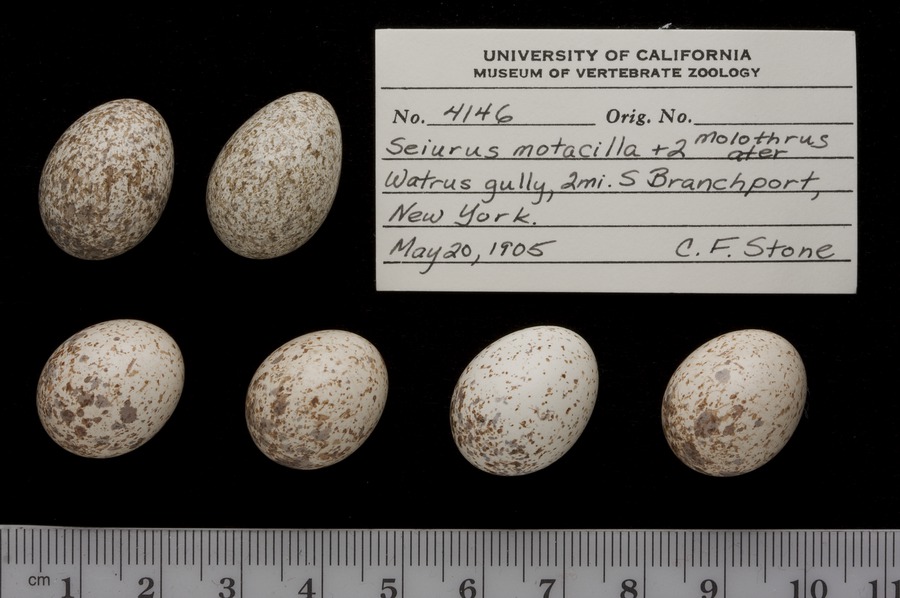 UNIVERSITY OF CALIFORNIA
MUSEUM OF VERTEBRATE ZOOLOGY
No. 4146 Orig. No.
Seiurus motacilla +2 Molothrus ater
Watrus gully, 2mi. S Branchport,
New York.
May 20, 1905 C. F. Stone
cm 1 2 3 4 5 6 7 8 9 10 11